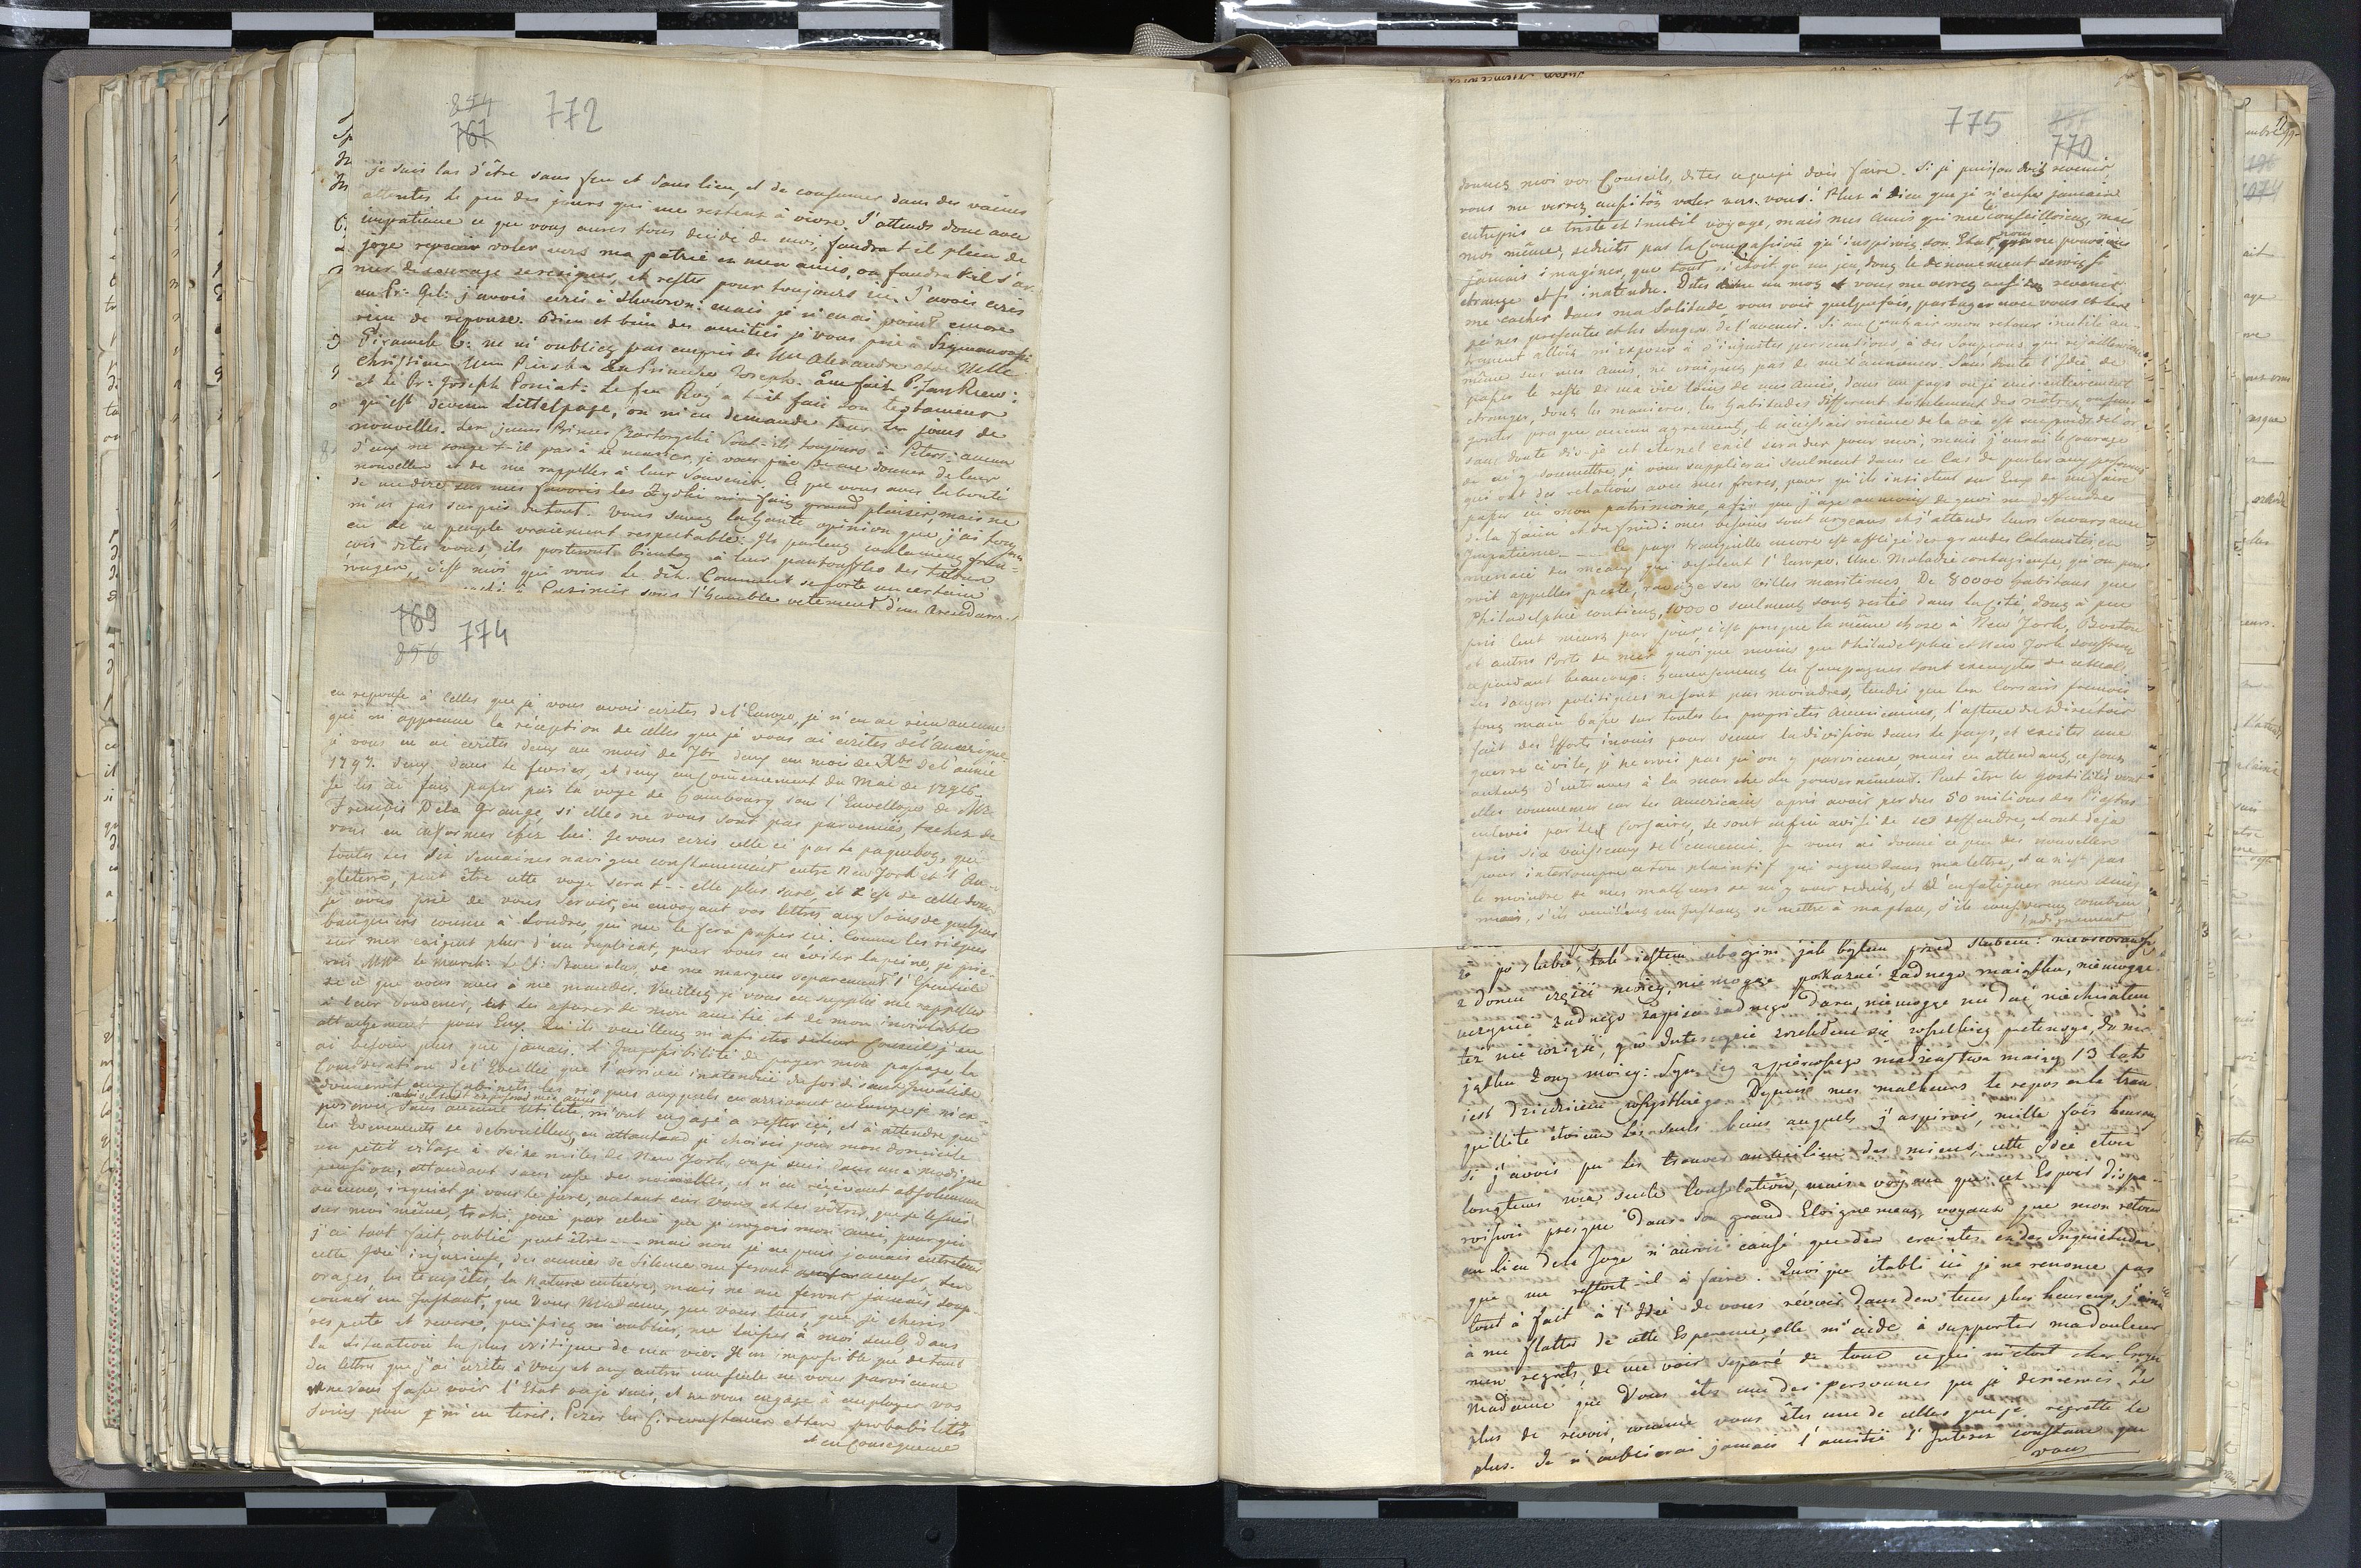 854
767
772
je suis las d'être sans feu et sans lieu, et de consumer dans des vaines
attentes le peu des jours qui me restent à vivre. J'attends donc avec
impatience ce que vous aurez tous decidé de moi, faudrat il plein de
joye revenir voler vers ma patrie en mes amis, ou faudra t-il s'ar
mer de courage se resigner, et rester pour toujours ici. J'avois ecris
au Pr: Gel: j'avois ecris à mais je n'en ai point encore
rien de reponse. Bien et bien des amitiés je vous prie à Szymanowski
Piramele C: ne m'oubliez pas aupres de Mr Alexandre et de Melle
Christine Mme la Princesse Joseph.
et le Pr: Joseph Poniat: Le feu Roy a t-il fait son testament
qu'est devenu Littelpage, on m'en demande tous les jours de
nouvelles. Les jeunes Princes Czartoryski sont-ils toujours à Peters: aucun
d'eux ne songe t-il pas à se marier, je vous prie de me donner de leurs
nouvelles et de me rappeller à leur souvenir. Ce que vous avez la bonté
de me dire sur mes favoris les Żydki m'a fait grand plaisir, mais ne
m'as pas surpris du tout. Vous savez la haute opinion que j'ai toujours
eu de ce peuple vraiement respectable: Ils parlent coulament fran-
cois dites vous, ils porteront bientot à leur pantouffles des talons
rouges, c'est moi qui vous le dit. Comment se porte un certain
à sous l'humble vetement d'un
769
856
774
en reponse à celles que je vous avois ecrites de l'Europe, je n'en ai rien aucune
qui m'apprenne la réception de celles que je vous ai ecrites de l'Amerique
je vous en ai ecrites deux au mois de 7br deux au mois de Xbr de l'année
1797. deux dans le fevrier, et deux au commencement du Mai de 1798.
Je les ai fait passer par la voye de Hambourg sous l'Envellope de Mr
François Dela Grange, si elles ne vous sont pas parvenues, tachez de
vous en informer chez lui. Je vous ecris celle ci par le paquebot, qui
toutes les six semaines navigue constamment entre New York et l'An-
gleterre, peut être cette voye sera t-elle plus sure, et c'est de celle dont
je vous prie de vous servir, en envoyant vos lettres aux soins de quelques
banquiers connu à Londres, qui me le fera passer ici. Comme les risques
sur mer exigent plus d'un duplicat, pour vous en eviter la peine, je prie-
rois Mme le March: de me marquer separement l'Essentiel
de ce que vous aurez à me mander. Veuillez je vous en supplie me rappeller
à leur souvenir, et les assurer de mon amitié et de mon inviolable
attachement pour Eux. Qu'ils veuillent m'assister de leur Conseil, j'en
ai besoin plus que jamais. L'Impossibilité de payer mon passage la
Consideration de l'Eveillé que l'arrivée inatendue du soi disant Invalide
donneroit aux Cabinets, les risques auxquels en arrivant en Europe je m'ex-
poserois sans aucune utilité, m'ont engagé à rester ici, et à attendre que
les Evenements se debrouillent, en attendant je choisis pour mon domicile
un petit vilage à seize miles de New York, ou je suis dans une modique
pension, attendant sans cesse des nouvelles, et n'en recevant absolument
aucune, inquiet je vous le jure, autant sur vous et les vôtres, que je le suis
sur moi même, trahi, joué par celui que je croyois mon ami, pour qui
j'ai tout fait, oublié peut être --- mais non je ne puis jamais entretenir
cette Idée injurieuse, des années de silence me feront accuser, les
orages, les tempêtes, la Nature entiere, mais ne me feront jamais soup-
conner un Instant, que Vous Madame, que vous tous, que je cheris
respecte et revere, puissiez m'oublier, me laisser à moi seul, dans
la situation la plus critique de ma vie. Il est impossible que de tant
des lettres que j'ai ecrites à Vous et aux autres une seule ne vous parvienne
ne vous fasse voir l'Etat ou je suis, et ne vous engage à employer vos
soins pour m'en tirer. Pezez les Circonstances et les probabilités
et en consequence
775
770
donnez moi vos Conseils, dites ce que je dois faire. Si je puis ou dois revenir,
vous me verrez aussitôt voler vers vous. Plut à Dieu que je n'eusse jamais
entrepris ce triste et inutil voyage, mais mes amis qui me le conseilloient, mais
moi même, seduits par la Compassion qu'inspiroit son Etat, nous ne pouvions
jamais imaginer, que tout n'etoit qu'un jeu, dont le denouement seroit si
etrange et si inatendu. Dites un mot et vous me verrez aussitôt revenir
me cacher dans ma solitude, vous voir quelquefois, partager avec vous et les
peines presentes et les songes de l'avenir. Si au Contraire mon retour inutile au-
trement alloit m'exposer à d'injustes persecutions, à des soupçons qui rejailleroient
même sur mes Amis, ne craignez pas de me l'annoncer. Sans doute l'Idée de
passer le reste de ma vie loins de mes Amis, dans un pays ou je suis entierement
etranger, dont les manieres, les habitudes different totalement des notres, ou sans
gouter presque aucun agrement, le necessair même de la vie est au poids de l'or
sans doute dis-je cet eternel exil sera dur pour moi, mais j'aurai le courage
de m'y soumettre, je vous supplierai seulment dans ce Cas de parler aux personnes
qui ont des relations avec mes freres, pour qu'ils insistent sur Eux de me faire
passer ici mon patrimoine, afin que j'aye au moins de quoi me deffendre
de la faim et du froid: mes besoins sont urgeans et j'attends leurs secours avec
Impatience --- Ce pays tranquille encore est affligé des grandes Calamités, en
menacé des meaux qui desolent l'Europe. Une Maladie contagieuse, qu'on pour
roit appeller peste, ravage ses Villes maritimes. De 80000 habitans que
Philadelphie contient, 10000 seulment sont restés dans la Cité, dont à peu
pres Cent meurt par jour, c'est presque la même chose à New York, Boston
et autres Ports de mer quoique moins que Philadelphie et New York souffrent
cependant beaucoup: heureusement les Campagnes sont exemptes de ces maux
Les dangers politiques ne sont pas moindres, tandis que les Corsairs francois
font main basse sur toutes les proprietés Americaines, l'astuce du Directoir
fait des Efforts inouis pour semer la division dans le pays, et exciter une
guerre civile, je ne crois pas qu'on y parvienne, mais en attendant, ce sont
autant d'entraves à la marche du gouvernement. Peut être les hostilités vont
elles commencer car les Americains après avoir perdus 50 milions des Piastres
enlevés par les Corsaires, se sont enfin avisé de se deffendre, et ont deja
pris six vaisseaux de l'ennemi. Je vous ai donné ce peu des nouvelles
pour interrompre ce ton plaintif qui regne dans ma lettre, et ce n'est pas
le moindre de mes malheurs de m'y voir reduit, et d'enfatiguer mes amis
mais, s'ils veuillent un Instant se mettre à ma place, s'ils considerent combien
indignement
że po ślubie, tak iestem ubogim jak byłem przed ślubem: nieodebrawszy
z domu części moiey, niemogąc pokazać żadnego maiątku, niemogąc
uczynić żadnego zapisu żadnego daru, niemogąc nic dać niechciałem
też nic wziąść, y w Intercyzie zrzekłem się wszelkiey pretensyi, do ma-
jątku żony moiey: Syn iey z pierwszego małżeństwa maiący 13 lat
iest dziedzicem wszystkiego. Depuis mes malheurs le repos et la tran
quillité etoient les seuls biens auxquels j'aspirois, mille fois heureux
si j'avois pu les trouver au milieu des miens, cette Idée etoit
longtems ma seule Consolation, mais voyant que cet Espoir dispa-
roissoit presque dans son grand Eloignement, voyant que mon retour
au lieu de la Joye n'auroit causé que des craintes et des Inquietudes
que me restoit-il à faire. Quoique établi ici je ne renonce pas
tout à fait à l'Idée de vous revoir dans des tems plus heureux, j'aime
à me flatter de cette Esperence, elle m'aide à supporter ma douleur
mes regrets, de me voir separé de tout ce qui m'etoit cher. Croyez
Madame que Vous êtes une des personnes que je desirerois le
plus de revoir, comme vous êtes une de celles que je regrette le
plus. Je n'oublierai jamais l'amitié l'Interet constant que
vous